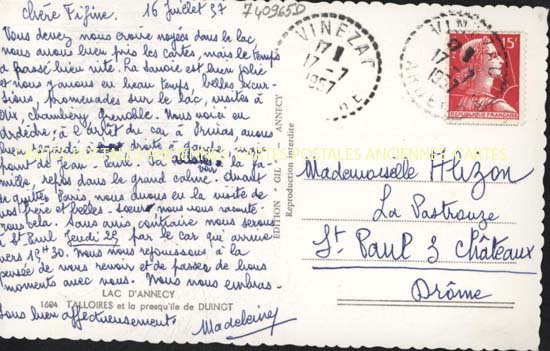 Chère Fifine, 16 Juillet 57
Vous devez nous croire noyées dans le lac
nous avons bien pris les cartes, mais le temps
a passé bien vite. La Savoie est bien jolie
et nous y avons eu beau temps, belles excur-
sions, promenades sur le lac, visites à
Chambéry, Grenoble. Nous voici en
Ardèche; à l'arrêt du car à
droite
point de
repos dans le grand calme. avant
de quitter Paris, nous avons eu la visite de
frère et belle-soeur
cela. Sans avis contraire nous serons
à St Paul Jeudi 25 par le car qui arrive
vers 13h30. Nous nous réjouissons à la
pensée de nous revoir et de passer de bons
moments avec vous. Nous vous embras-
sons bien affectueusement. Madeleine
LAC D'ANNECY
1604 TALLOIRES et la presqu'île de DUINGT
EDITION GIL ANNECY
Reproduction interdite
7409650
VINEZAC
17 H
17-7
1957
VINEZAC
17-7
1957
ARDECHE
15F
REPUBLIQUE FRANCAISE
CARTES POSTALES ANCIENNES CARTES
Mademoiselle Alizon
La Pastrouze
St Paul 3 Châteaux
Drôme